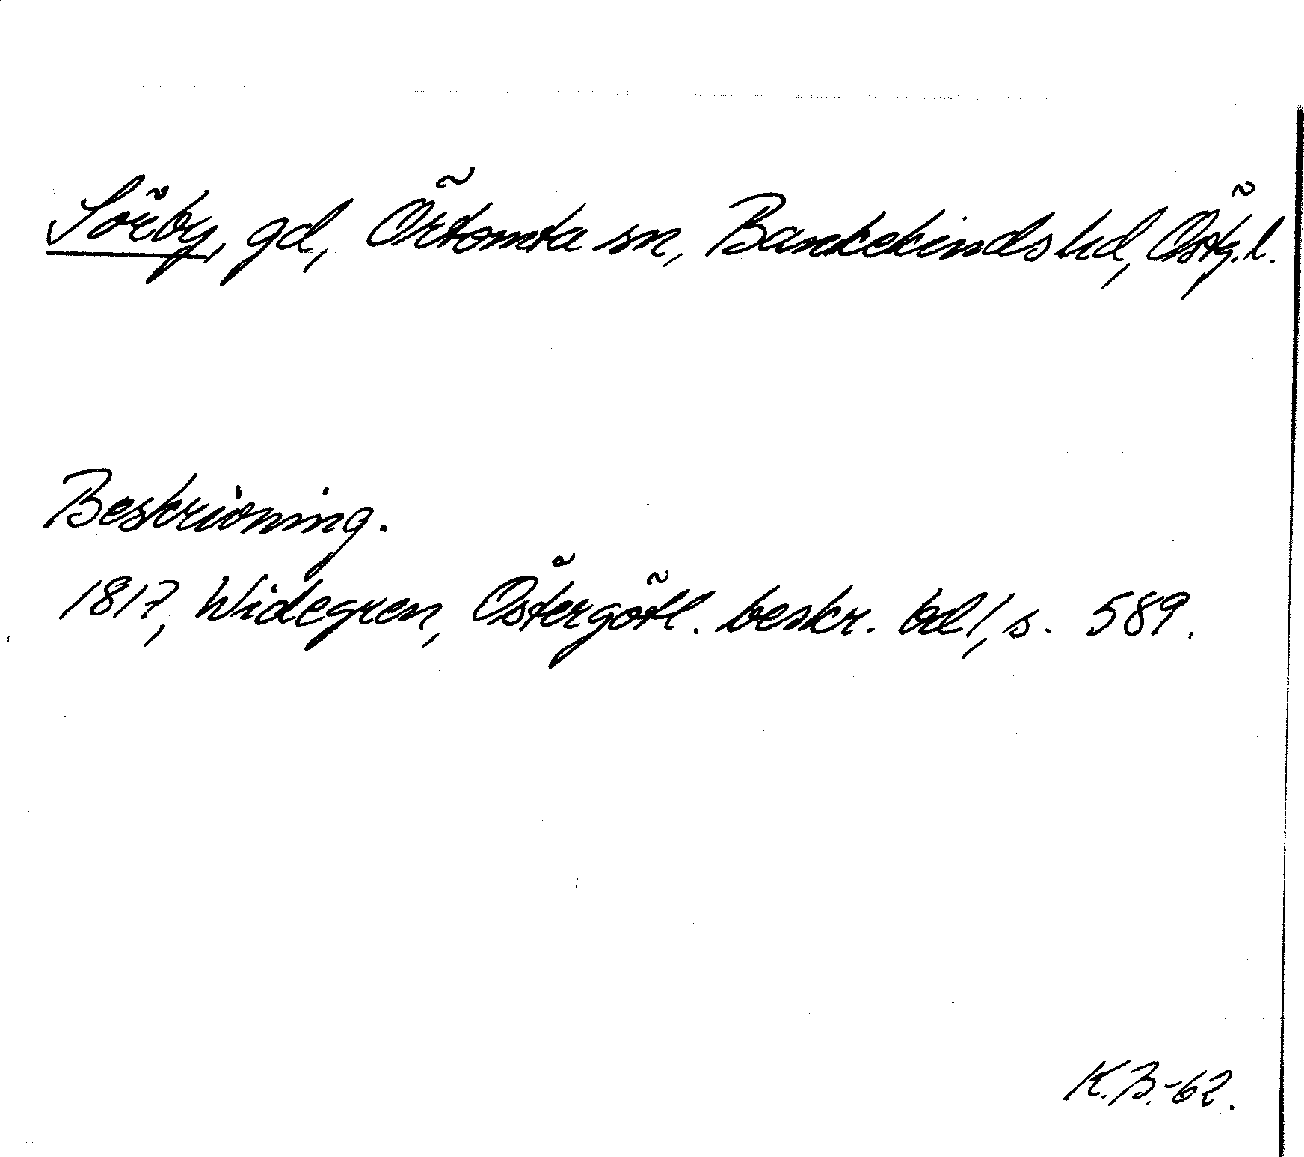 Sörby, gd, Örtomta sn, Bankekinds hd, Östg.l.
Beskrivning.
1817, Widegren, Östergötl. beskr. bd 1, s. 589.
K.B.-62.